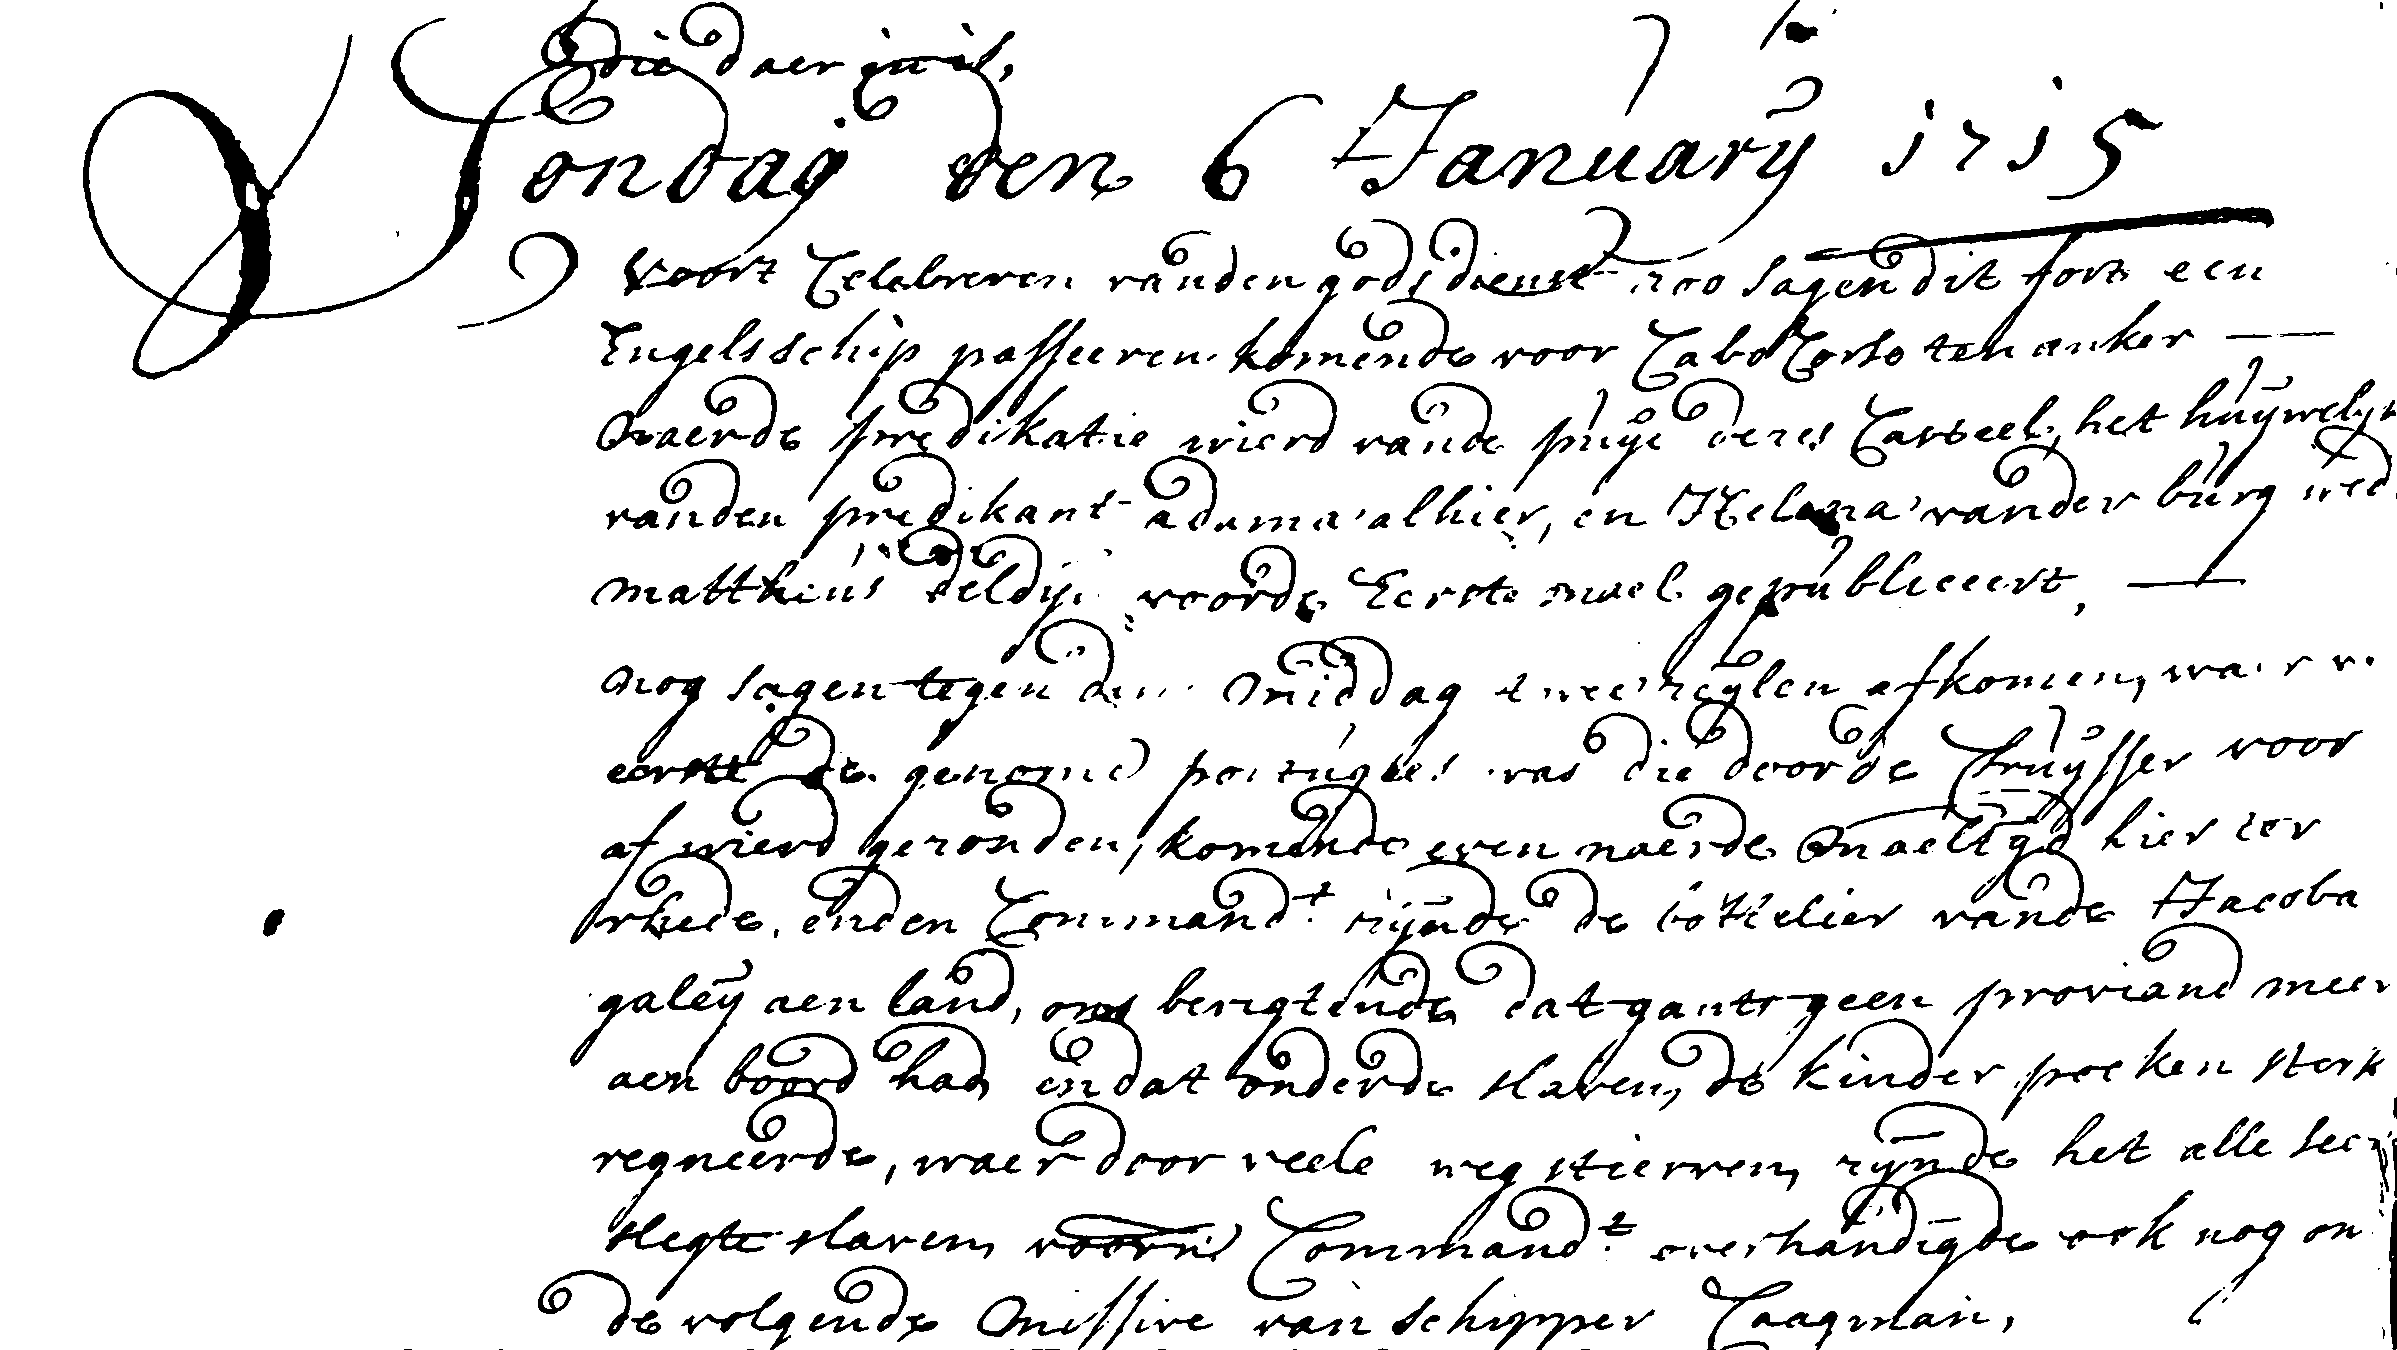 die daer in is,
Sondag den 6 January 1715
Voort Celebreren van den godsdienst zoo sagen dit fort een
Engels schip passeeren komende voor Cabo Corso ten anker —
Naer de predikatie wierd van de puye deses Casteel, het huywelyk
van den predikant aduma alhier, en Helena van der burg wed
Mattheus deldyn voor de Eerste mael gepubliceert, —
Nog sagen tegen den Middag twee zeylen afkomen, waer v
eerste de genome portugees was die door de Cruysser voor
af wierd gezonden, komende even naer de Maeltyd hier ter
rhede, en den Command.t zynde de bottelier van de Jacoba
galey aen land, ons berigtende dat gants geen proviand meer
aen boord had en dat onder de slaven, de kinder pocken sterk
regneerde, waer door veele weg stierven, zynde het alle seer
slegte slaven, voorn. Command.t overhandigde ook nog on
de volgende Missive van schipper Caagman,